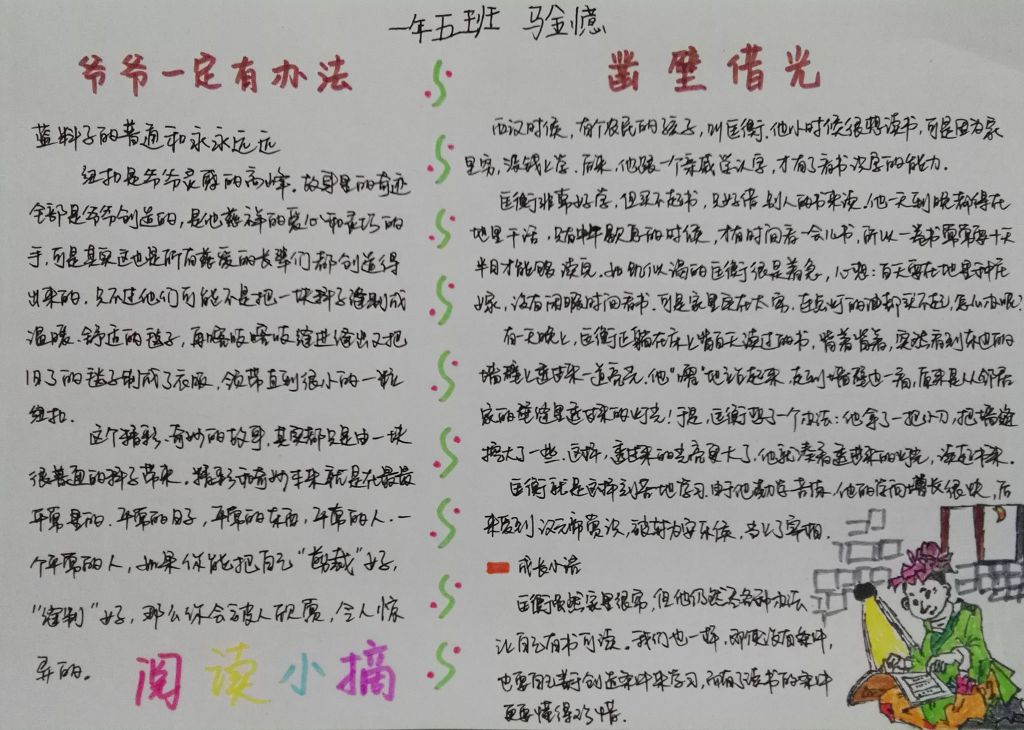 一年五班 马金憶
爷爷一定有办法
蓝料子的普通和永永远远
纽扣是爷爷灵感的高峰。故事里的奇迹
全部是爷爷创造的,是他慈祥的爱心和灵巧的
手,可是其实这也是所有慈爱的长辈们都创造得
出来的。只不过他们可能不是把一块料子缝制成
温暖、舒适的毯子,再喀吱喀吱缝进缝出又把
旧了的毯子制成了衣服,领带直到很小的一粒
纽扣
这个精彩、奇妙的故事,其实都只是由一块
很普通的料子带来。精彩和奇妙手来就是在最最
平常里的。平常的日子,平常的东西,平常的人.一
个平常的人,如果你能把自己“剪裁”好,
“缝制”好,那么你会被人欣赏,令人惊
异的。
阅读小摘
凿壁借光
西汉时候,有个农民的孩子,叫匡衡.他小时候很想读书,可是因为家
里穷,没钱上学.后来,他跟一个亲戚学认字,才有了看书识字的能力.
匡衡非常好学,但买不起书,只好借别人的书来读.他一天到晚都得在
地里干活,只有中午歇息的时候,才有时间看一会儿书,所以一卷书常常要十天
半月才能够读完.如饥似渴的匡衡很是着急,心想:白天要在地里种庄
稼,没有闲暇时间看书.可是家里实在太穷,连点灯的油都买不起,怎么办呢?
有一天晚上,匡衡正躺在床上背白天读过的书,背着背着,突然看到东边的
墙壁上透过来一道亮光,他“嚯”地站起来.走到墙壁边一看,原来是从邻居
家的壁缝里透过来的灯光!于是,匡衡想了一个办法:他拿了一把小刀,把墙缝
挖大了一些.这样,透过来的光亮更大了,他就凑着透进来的灯光,读起书来.
匡衡就是这样到各地学习.由于他勤学苦练,他的学问增长很快,后
来受到汉元帝赏识,被封为安乐侯,当上了宰相.
成长小语
匡衡虽然家里很穷,但他仍然想各种办法
让自己有书可读。我们也一样,即使没有条件,
也要自己动手创造条件来学习,而有了读书的条件
更要懂得珍惜.